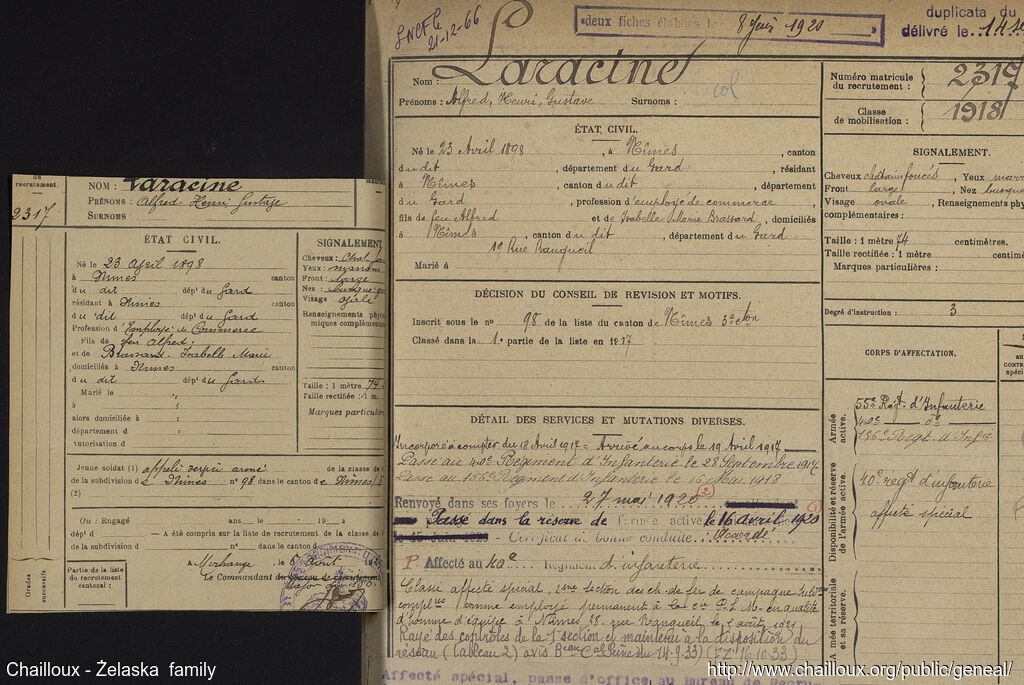 du
recrutement.
2317
NOM : Laracine
PRÉNOMS : Alfred-Henri Gustave
SURNOMS :
ÉTAT CIVIL.
Né le 23 April 1898
à Nimes canton
du dit dépt du Gard
résidant à Nimes canton
du dit dépt du Gard
Profession d'Employé de Commerce
Fils de feu Alfred
et de Brassard, Isabelle Marie
domiciliés à Nimes canton
du dit dépt du Gard
Marié le
à
alors domiciliée à
département d
Autorisation d
SIGNALEMENT
Cheveux :
Yeux : marrons
Front : large
Nez :
Visage
Renseignements phys
miques complémentair
Taille : 1 mètre 74
Taille rectifiée : 1 m.
Marques particulière
Jeune soldat (1) appelé service armé de la classe de
de la subdivision de Nimes n° 98 dans le canton de Nimes
(2)
Ou : Engagé an le 19 à
dép t d — A été compris sur la liste de recrutement de la classe d
de la subdivision d n° dans le canton d
Grades successifs
Partie de la liste du recrutement cantonal :
A Morhange, le
Le Commandant du
SNCF le
21-12-66
deux fiches établies le 8 Juin 1920
duplicata du
délivré le
Nom : Laracine
Prénoms : Alfred, Henri, Gustave Surnoms :
col
Numéro matricule du recrutement : 2317
Classe de mobilisation : 1918
ÉTAT CIVIL.
Né le 23 Avril 1898 , à Nîmes , canton
du dit , département du Gard , résidant
à Nîmes , canton du dit , département
du Gard , profession d'employé de commerce ,
fils de feu Alfred et de Isabelle Marie Brassard , domiciliés
à Nîmes , canton du dit , département du Gard
19 Rue Ranqueil
Marié à
SIGNALEMENT.
Cheveux châtain foncés, Yeux marr
Front large, Nez busqué
Visage ovale, Renseignements physi
complémentaires :
Taille : 1 mètre 74 centimètres.
Taille rectifiée : 1 mètre centimè
Marques particulières :
Degré d'instruction : 3
DÉCISION DU CONSEIL DE REVISION ET MOTIFS.
Inscrit sous le n° 98 de la liste du canton de Nîmes 3e cton
Classé dans la 1e partie de la liste en 1917
DÉTAIL DES SERVICES ET MUTATIONS DIVERSES.
Incorporé à compter du 18 Avril 1917 = Arrivé au corps le 19 Avril 1917
Passé au 40e Régiment d'Infanterie le 28 Septembre 1917
Passé au 156e Régiment d'Infanterie le 16 Mai 1918
Renvoyé dans ses foyers le 27 mai 1920 (2)
Passé dans la réserve de l'armée active le 16 avril 1920
le 15 Juin 1920 - Certificat de bonne conduite Accordé
P Affecté au 40e Régiment d'infanterie
Classé affecté spécial, 2ème section des ch. de fer de campagne
complres comme employé permanent à la Cie P.L.M. en qualité
d'homme d'équipe à Nîmes 28, rue Ranqueil le août 1921
Rayé des contrôles de la 1e section et maintenu à la disposition du
réseau (Tableau 2) avis Beau Cal Seine du 14-9-33) (FZ 16.10.33)
Affecté spécial, passe d'office au Bureau de Recru
CORPS D'AFFECTATION.
Armée active.
55e Régt d'Infanterie
40e do
156e Régt d'Infie
Disponibilité et réserve de l'armée active
40e régt d'infanterie
affecté spécial
Armée territoriale et sa réserve.
Chailloux - Żelaska family
http://www.chailloux.org/public/geneal/